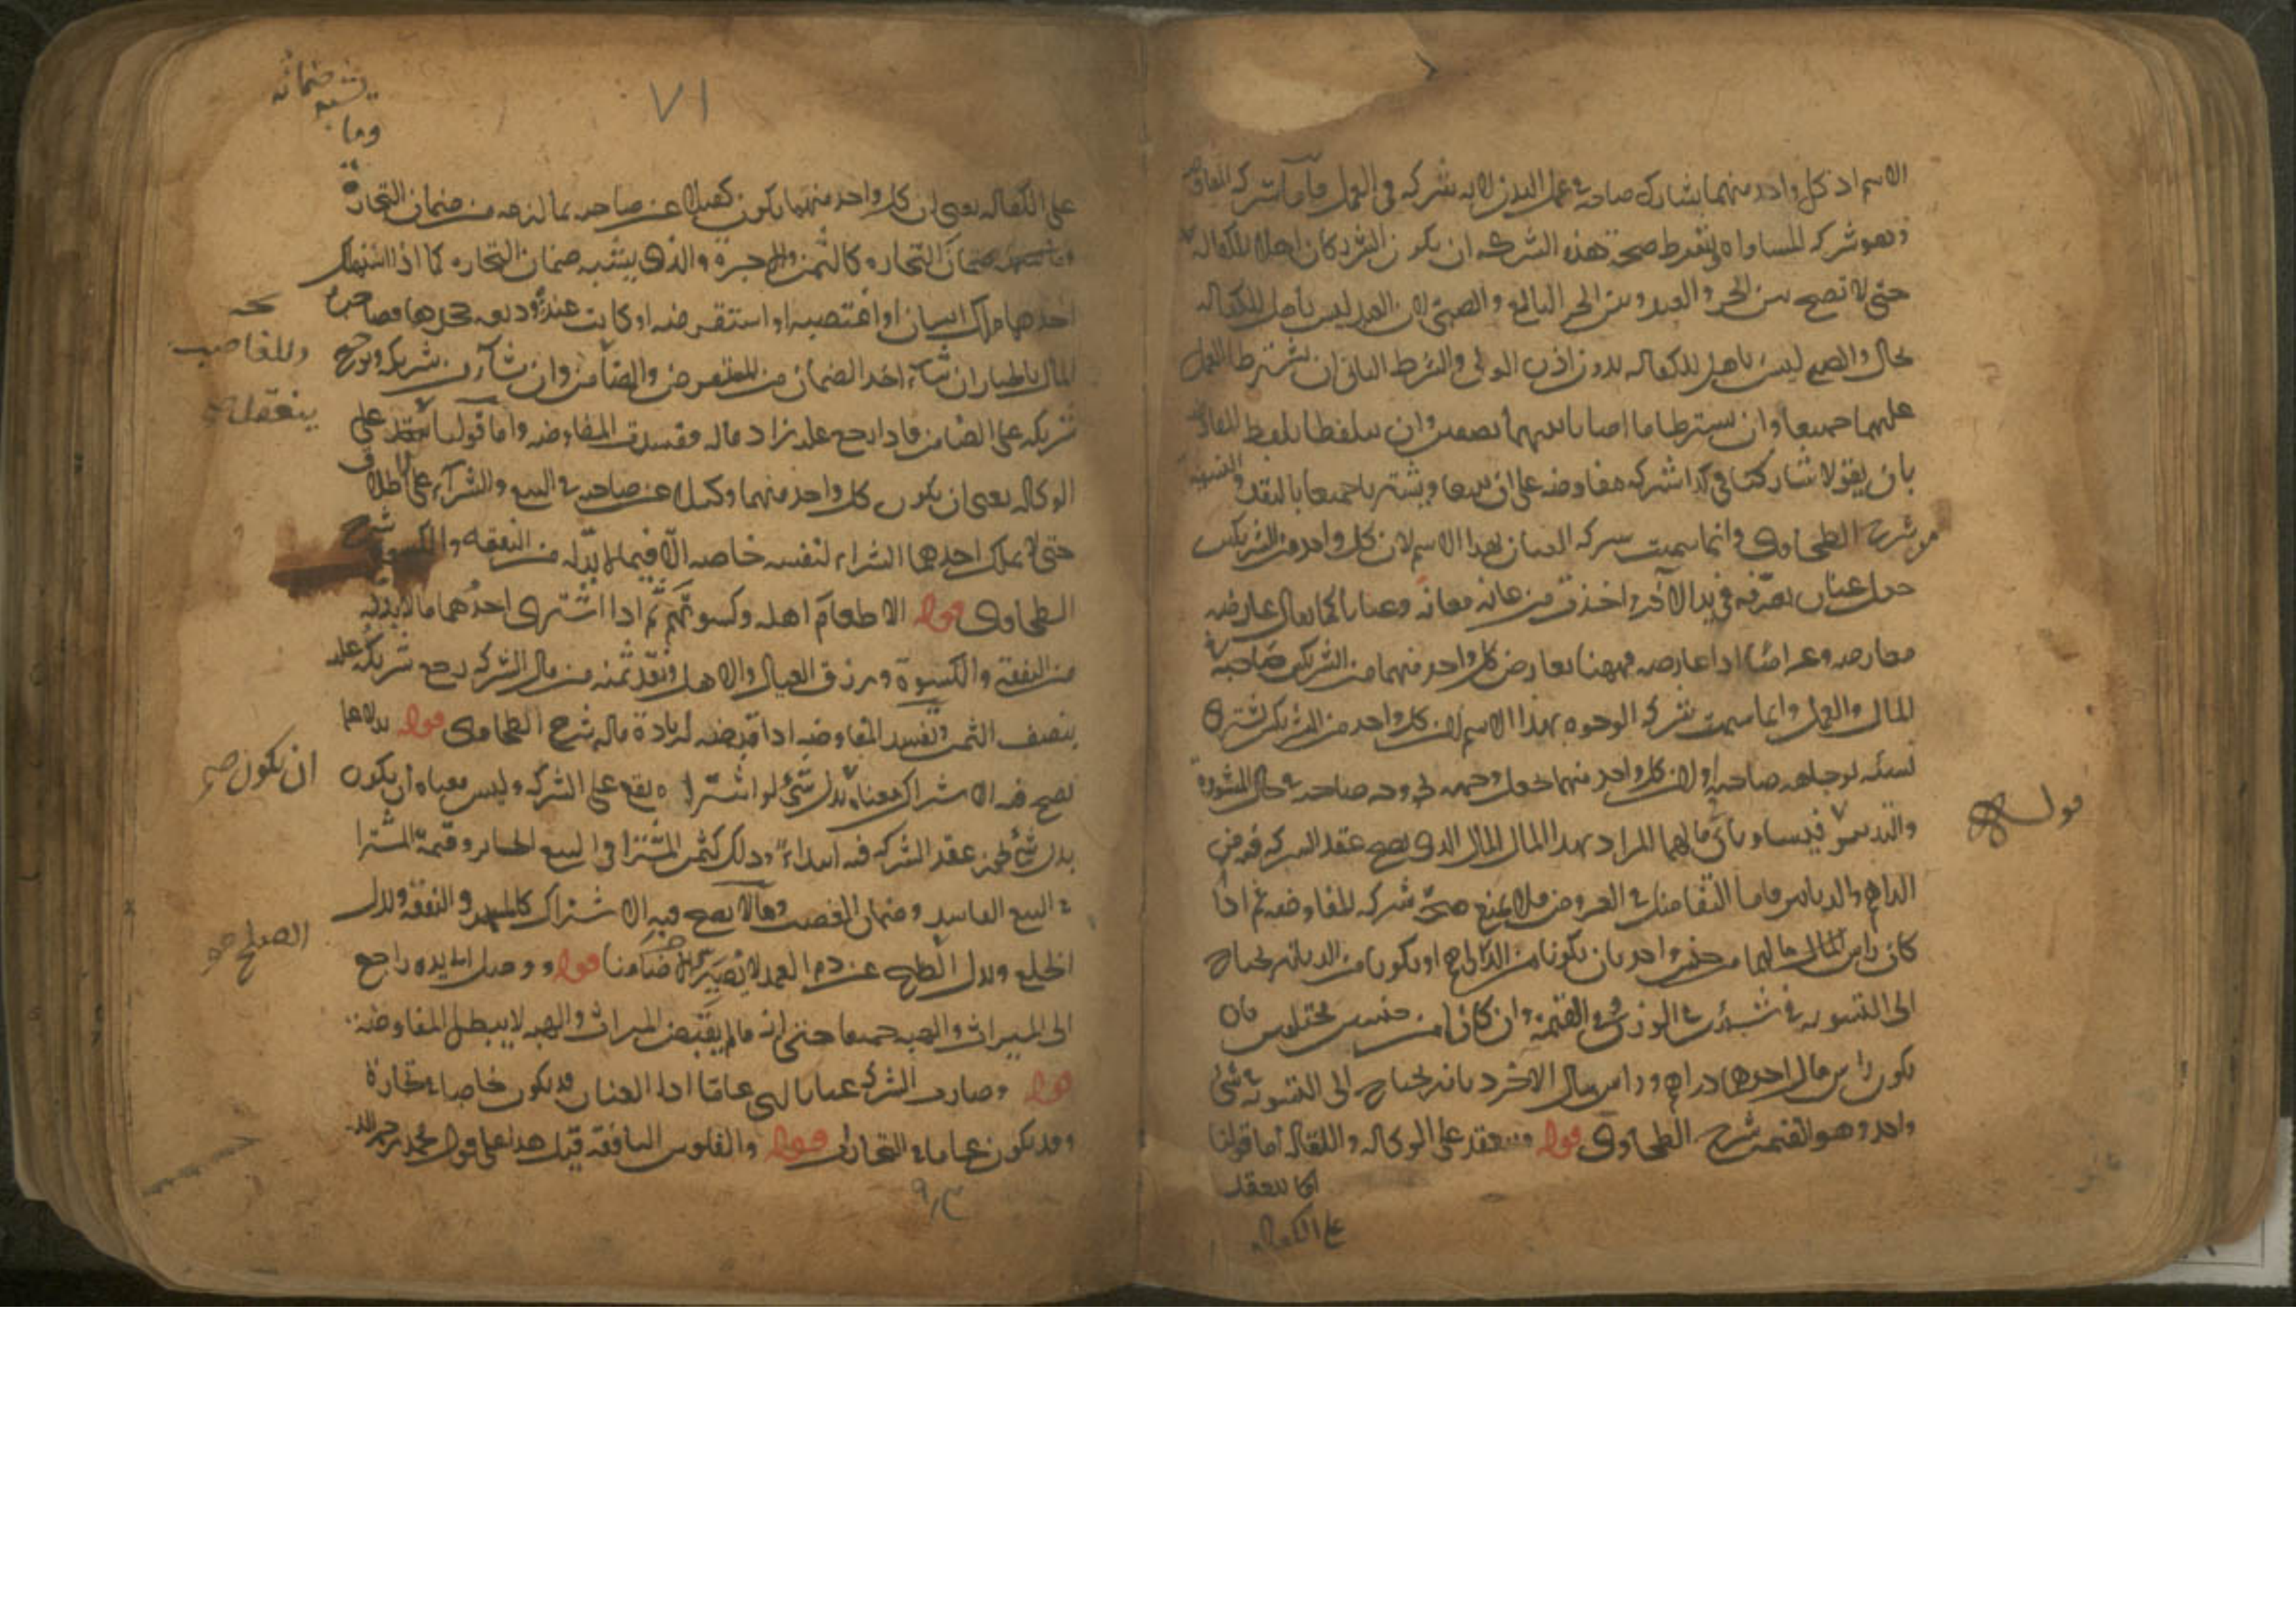 الاسم اذ كل واحد منهما يشارك صاحبه في عمل البدن لانه شركه في العمل واما شركه المفاوضه
وهو شركه المساواه يشترط صحة هذه الشركه ان يكون الشريكان اهلا للكفاله
حتى لا تصح بين الحر والعبد وبين الحر البالغ والصبى لان العبد ليس باهل للكفاله
بحال والصبي ليس باهل للكفاله بدون اذن الولي والشرط الثاني ان يشترطا العمل
عليهما جميعا وان يشترطا ما اصابا بينهما نصفين وان يتلفظا بلفظ المفاوضه
بان يقولا شاركتك في كذا شركه مفاوضه على ان نبيعا ونشتريا جميعا بالنقد والنسيه
من شرح الطحاوى وانما سميت شركه العنان بهذا الاسم لان كل واحد من الشريكين
جعل عنان تصرفه في يد الآخر اخذت من عانه معانه وعنانا كما يقال عارضه
معارضه وعراضا اذا عارضه فههنا يعارض كل واحد منهما من الشريكين صاحبه في
المال والعمل وانما سميت شركه الوجوه بهذا الاسم لان كل واحد من الشريكين يشترى
نسئه لوجاهه صاحبه او لان كل واحد منهما جعل وجهه الى وجه صاحبه في حال المشورة
قوله
فيساويان مالهما المراد بهذا المال المال الذى يصح عقد الشركه فيه من
الدراهم والدنانير فاما التفاضل في العروض فلا يمنع صحة شركه المفاوضه ثم اذا
كان راس المال مالهما من جنس واحد بان يكونا من الدراهم او يكونا من الدنانير يحتاج
الى التسويه في شيئين في الوزن وفي القيمه وان كانا من جنسين مختلفين بان
يكون راس مال احدهما دراهم وراس مال الاخر دنانير يحتاج الى التسويه في شئ
واحد وهو القيمه شرح الطحاوى قوله وينعقد على الوكاله والكفاله اما قولنا
انها تنعقد
على الكفاله
٧١
وما يشبه ضمانه
على الكفاله يعنى ان كل واحد منهما يكون كفيلا عن صاحبه بما لزمه من ضمان التجارة
ضمان التجاره كالثمن والاجرة والذى يشبه ضمان التجاره كما اذا استهلك
احدهما ملك انسان او اغتصبه او استقرضه او كانت عنده وديعه جحدها فصاحب
المال بالخيار ان شاء اخذ الضمان من المستقرض والضامن وان شاء من شريكه ويرجع
وللغاصب
شريكه على الضامن فاذا رجع عليه زاد ماله وفسدت المفاوضه واما قولنا على
ينعقد
الوكاله يعنى ان يكون كل واحد منهما وكيلا عن صاحبه في البيع والشراء على الاطلاق
حتى لا يملك احدهما الشراء لنفسه خاصه الا فيما لا بد له من النفقه والكسوة شرح
الطحاوى قوله الا طعام اهله وكسوتهم ثم اذا اشترى احدهما ما لا بد له
من النفقه والكسوة ورزق العيال والاهل ونقد ثمنه من مال الشركه رجع شريكه عليه
بنصف الثمن وتفسد المفاوضه اذا قبضه لزيادة ماله شرح الطحاوى قوله بدلا عما
يصح فيه الاشتراك معناه بدل شئ لو اشتراه يقع على الشركه وليس معناه ان يكون
ان يكون صح
بدل شئ عقد الشركه فيه ابتداء وذلك كثمن المشترا في البيع الجائز وقيمة المشترا
في البيع الفاسد وضمان الغصب وما لا يصح فيه الاشتراك كالمهر والنفقه وبدل
الصلح صح
الخلع وبدل الصلح عن دم العمد لا يصير ضامنا قوله ووصل الى يده راجع
الى الميراث والهبه جميعا حتى انه ما لم يقبض الميراث والهبه لا يبطل المفاوضه
قوله وصارت الشركه عنانا عاما اذا العنان قد يكون خاصا في تجارة
وقد يكون عاما في التجارات قوله والفلوس النافقه قيل هذا على قول محمد رحمه الله